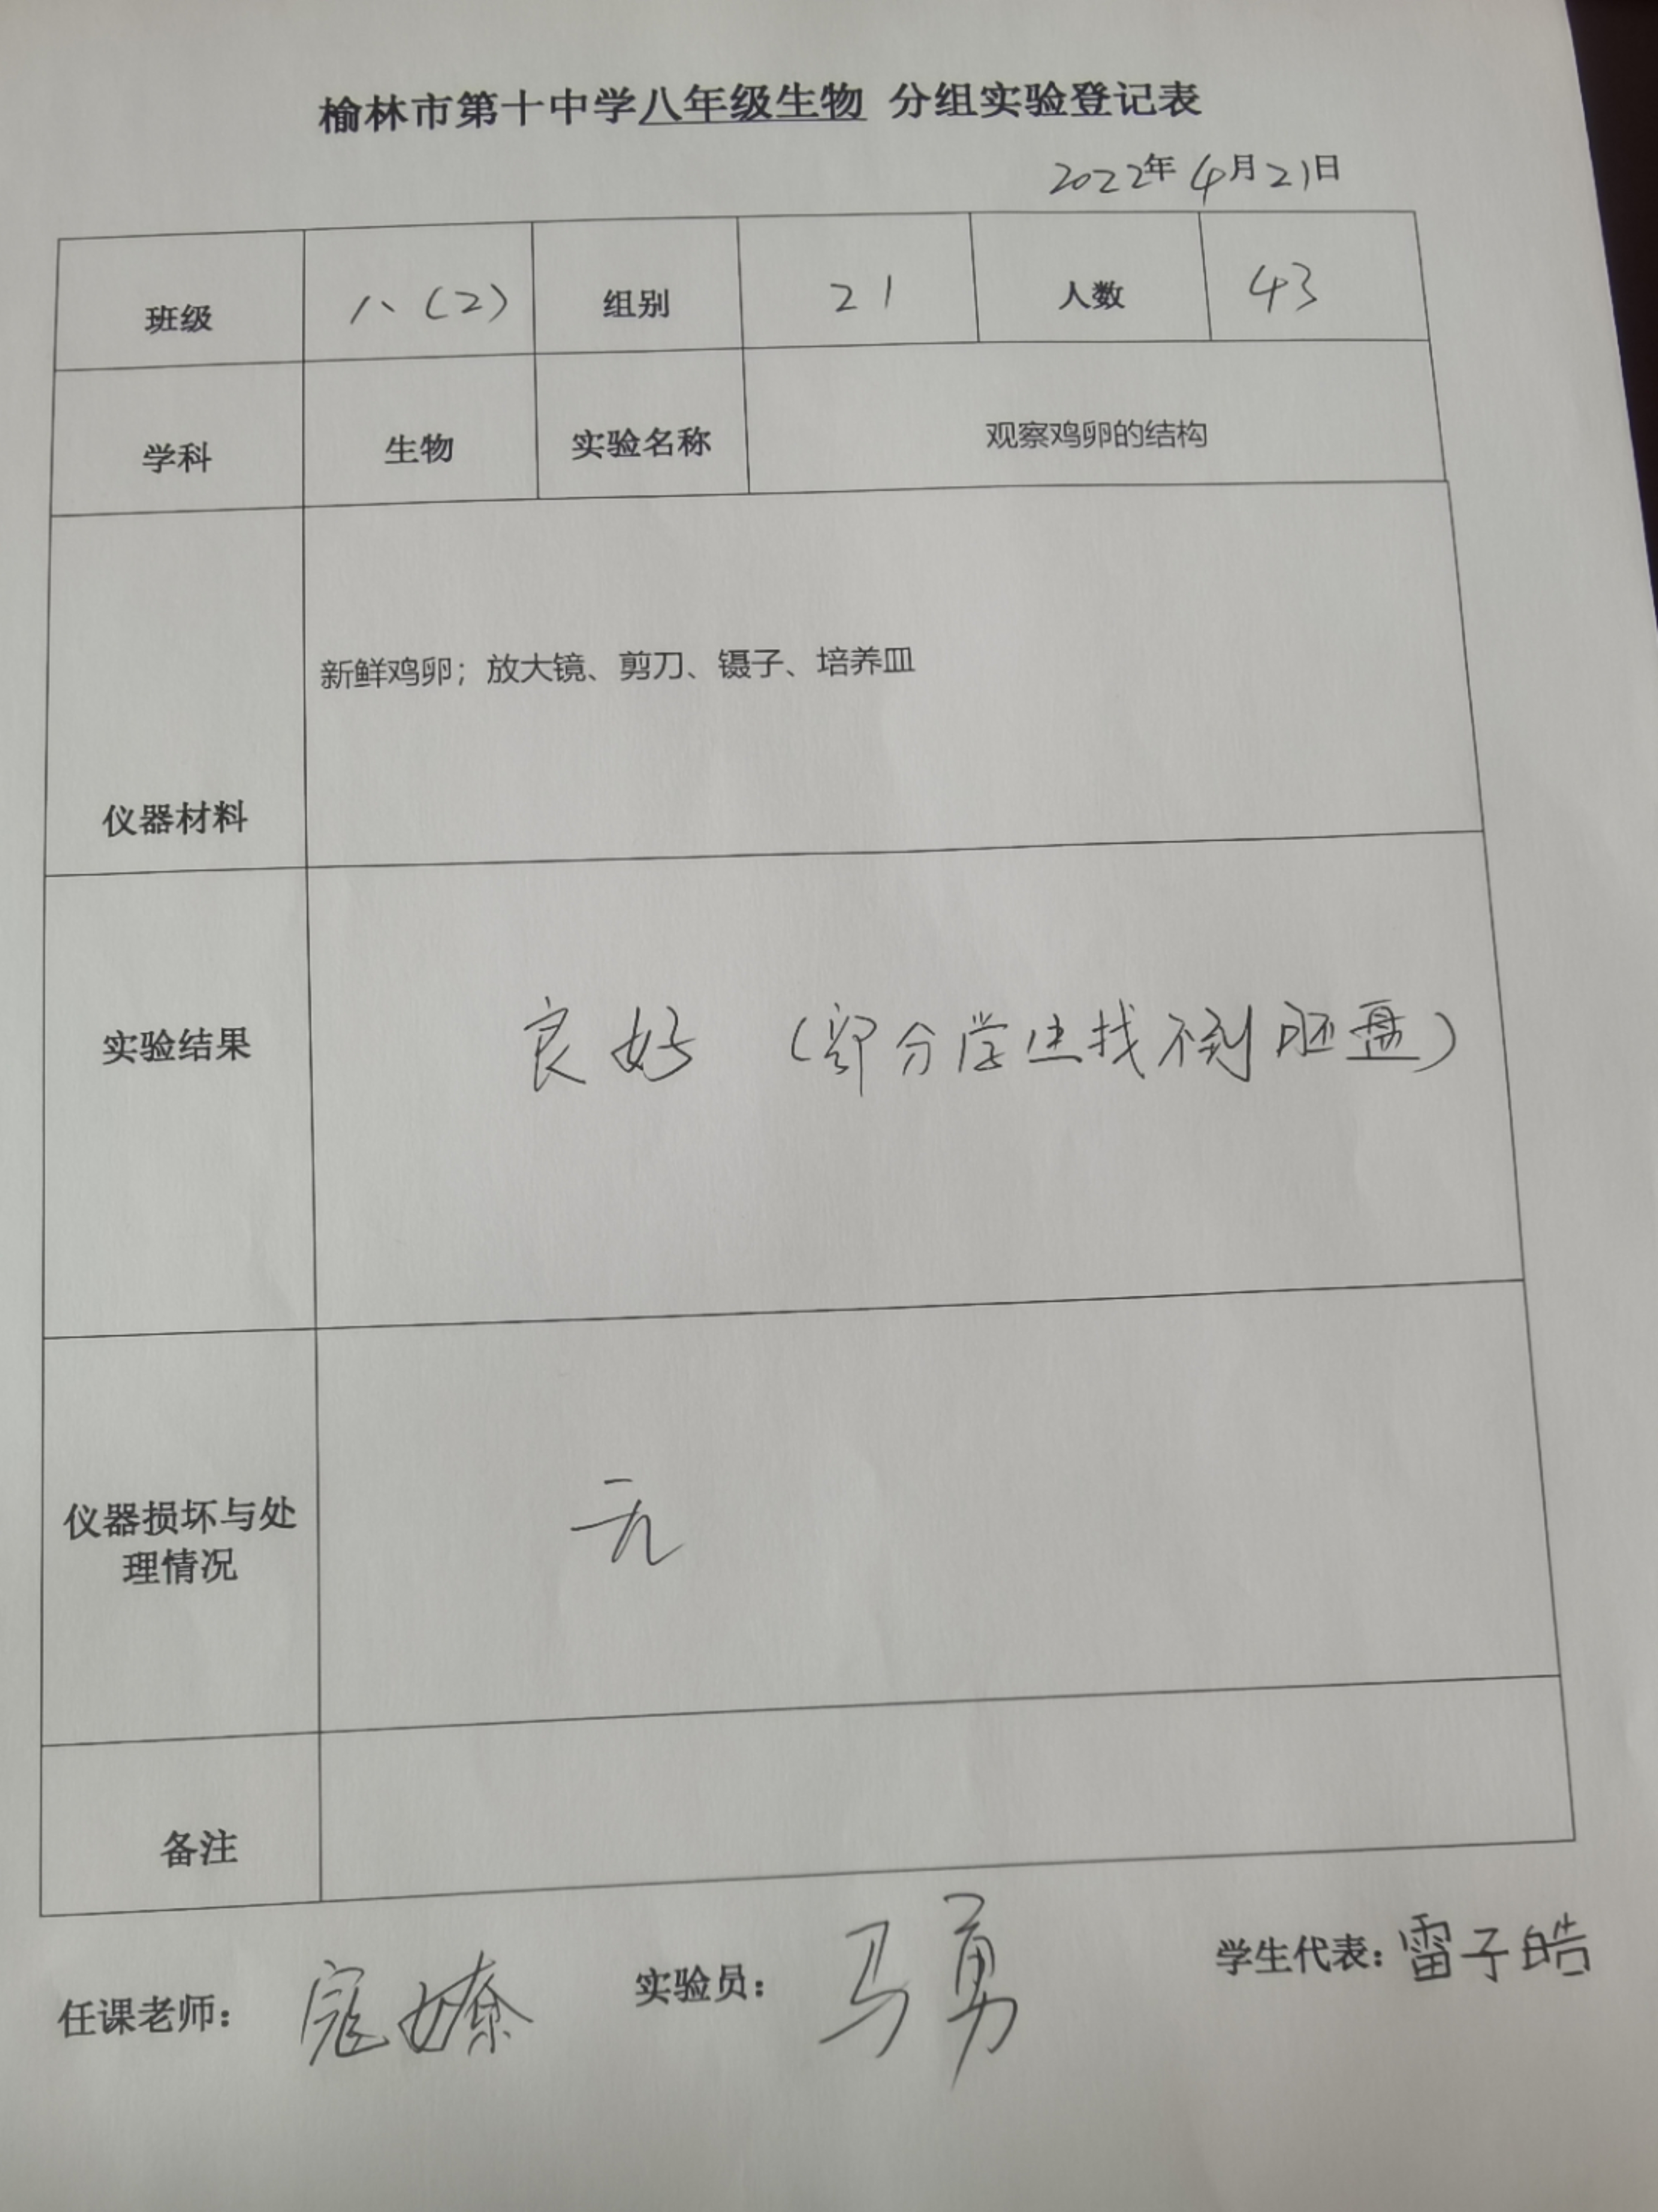 榆林市第十中学八年级生物 分组实验登记表
2022年4月21日
班级 八(2) 组别 21 人数 43
学科 生物 实验名称 观察鸡卵的结构
仪器材料 新鲜鸡卵；放大镜、剪刀、镊子、培养皿
实验结果 良好 (部分学生找不到胚盘)
仪器损坏与处
理情况 无
备注
任课老师： 寇嫽 实验员： 马勇 学生代表：雷子皓